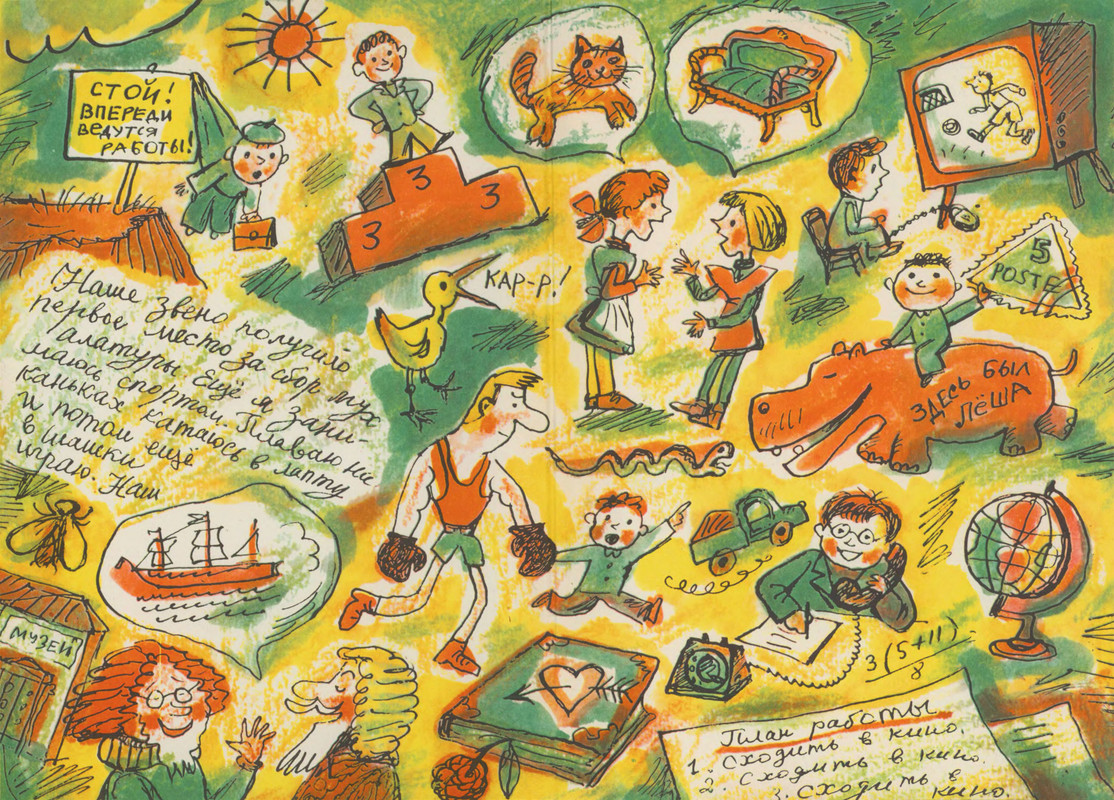 СТОЙ!
ВПЕРЕДИ
ВЕДУТСЯ
РАБОТЫ!
3
3
3
КАР-Р!
5
POSTE
ЗДЕСЬ БЫЛ
ЛЁША
Наше звено получило
первое место за сбор мук
алатуры. Ещё я зани-
маюсь спортом. Плаваю на
каньках катаюсь в лапту
и потом ещё
в шашки
играю. Наш
МУЗЕЙ
3(5+11)
8
План работы
1. Сходить в кино.
2. Сходить в кино.
3. Сходить в
кино.